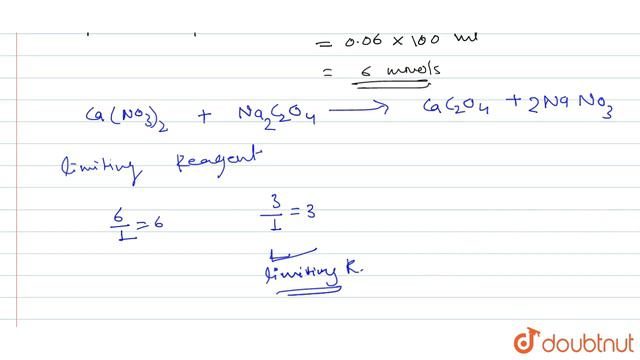 = 0.06 × 100 ml
= 6 mmols
Ca(NO3)2 + Na2C2O4 → CaC2O4 + 2NaNO3
limiting Reagent
6/1 = 6 3/1 = 3
limiting R.
doubtnut